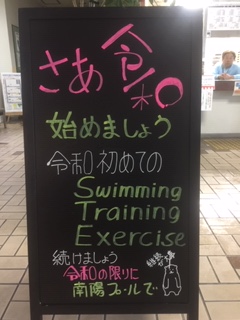 さあ 令和
始めましょう
令和初めての
Swimming
Training
Exercise
続けましょう
令和の限りに
南陽プールで